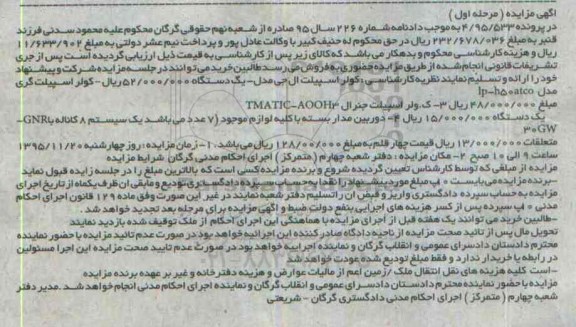 آگهی مزایده ( مرحله اول )
در پرونده ۴/۹۵/۵۳۳ به موجب دادنامه شماره ۲۲۶ سال ۹۵ صادره از شعبه نهم حقوقی گرگان محکوم علیه محمود سدنی فرزند
قنبر به مبلغ ۲۳۲/۶۷۸/۰۳۶ ریال در حق محکوم له حنیف کبیر با وکالت عادل پور و پرداخت نیم عشر دولتی به مبلغ ۱۱/۶۳۳/۹۰۲
ریال و هزینه کارشناسی محکوم و بدهکار می باشد که کالای زیر پس از کارشناسی به قیمت ذیل ارزیابی گردیده است پس از جری
تشریفات قانونی انجام شده از طریق مزایده حضوری به فروش می رسد طالبین خرید می توانند در جلسه مزایده شرکت و پیشنهاد
خود را ارائه و تسلیم نمایند نظریه کارشناسی : کولر اسپیلت ال جی مدل- یک دستگاه ۵۲/۰۰۰/۰۰۰ ریال - کولر اسپیلت گری
مدل lp-h۵۰atco
مبلغ ۴۸/۰۰۰/۰۰۰ ریال ۳- کولر اسپیلت جنرال TMATIC-A00H۳
یک دستگاه ۱۵/۰۰۰/۰۰۰ ریال ۴- دوربین مدار بسته با کلیه لوازم موجود (۷ عدد می باشد یک سیستم ۸ کاناله با GNR-
۳۰GW
متعلقات ۱۳/۰۰۰/۰۰۰ ریال قیمت چهار قلم به مبلغ ۱۲۸/۰۰۰/۰۰۰ ریال می باشد . ۱- زمان مزایده : روز چهارشنبه ۱۳۹۵/۱۱/۲۰
ساعت ۹ الی ۱۰ صبح ۲- مکان مزایده : دفتر شعبه چهارم ( متمرکز ) اجرای احکام مدنی گرگان شرایط مزایده
مزایده از مبلغی که توسط کارشناس تعیین گردیده شروع و برنده مزایده کسی است که بالاترین مبلغ را در جلسه زایده قبول نماید
برنده مزایده می بایست ۱۰% مبلغ مورد پیشنهاد را نقدا به حساب سپرده دادگستری تودیع و مابقی آن ظرف یکماه از تاریخ اجرای
مزایده به حساب سپرده دادگستری واریز و قبض آن را تسلیم دفتر شعبه نمایند در غیر این صورت وفق ماده ۱۲۹ قانون اجرای احکام
مدنی ۱۰% سپرده پس از کسر هزینه های اجرایی بنفع دولت ضبط و آگهی مزایده برای مرحله بعد تجدید خواهد شد .
-طالبین خرید می توانند یک هفته قبل از اجرای مزایده با هماهنگی این اجرای احکام از ملک توقیف شده بازدید نمایند
تحویل مال پس از تائید صحت مزایده از ناحیه دادگاه صادر کننده این اجرائیه خواهد بود در صورت عدم تائید مزایده با حضور نماینده
محترم دادستان دادسرای عمومی و انقلاب گرگان و نماینده اجراییه خواهد بود در صورت عدم تایید صحت مزایده این اجرا مسئولیتی
در رابطه با خریدار ندارد و فقط مبلغ تودیع شده عودت خواهد شد
-است کلیه هزینه های نقل انتقال ملک /زمین اعم از مالیات عوارض و هزینه دفترخانه و غیر بر عهده برنده مزایده
مزایده با حضور نماینده محترم دادستان دادسرای عمومی و انقلاب گرگان و نماینده اجرای احکام مدنی انجام خواهد شد .مدیر دفتر
شعبه چهارم ( متمرکز ) اجرای احکام مدنی دادگستری گرگان - شریعتی